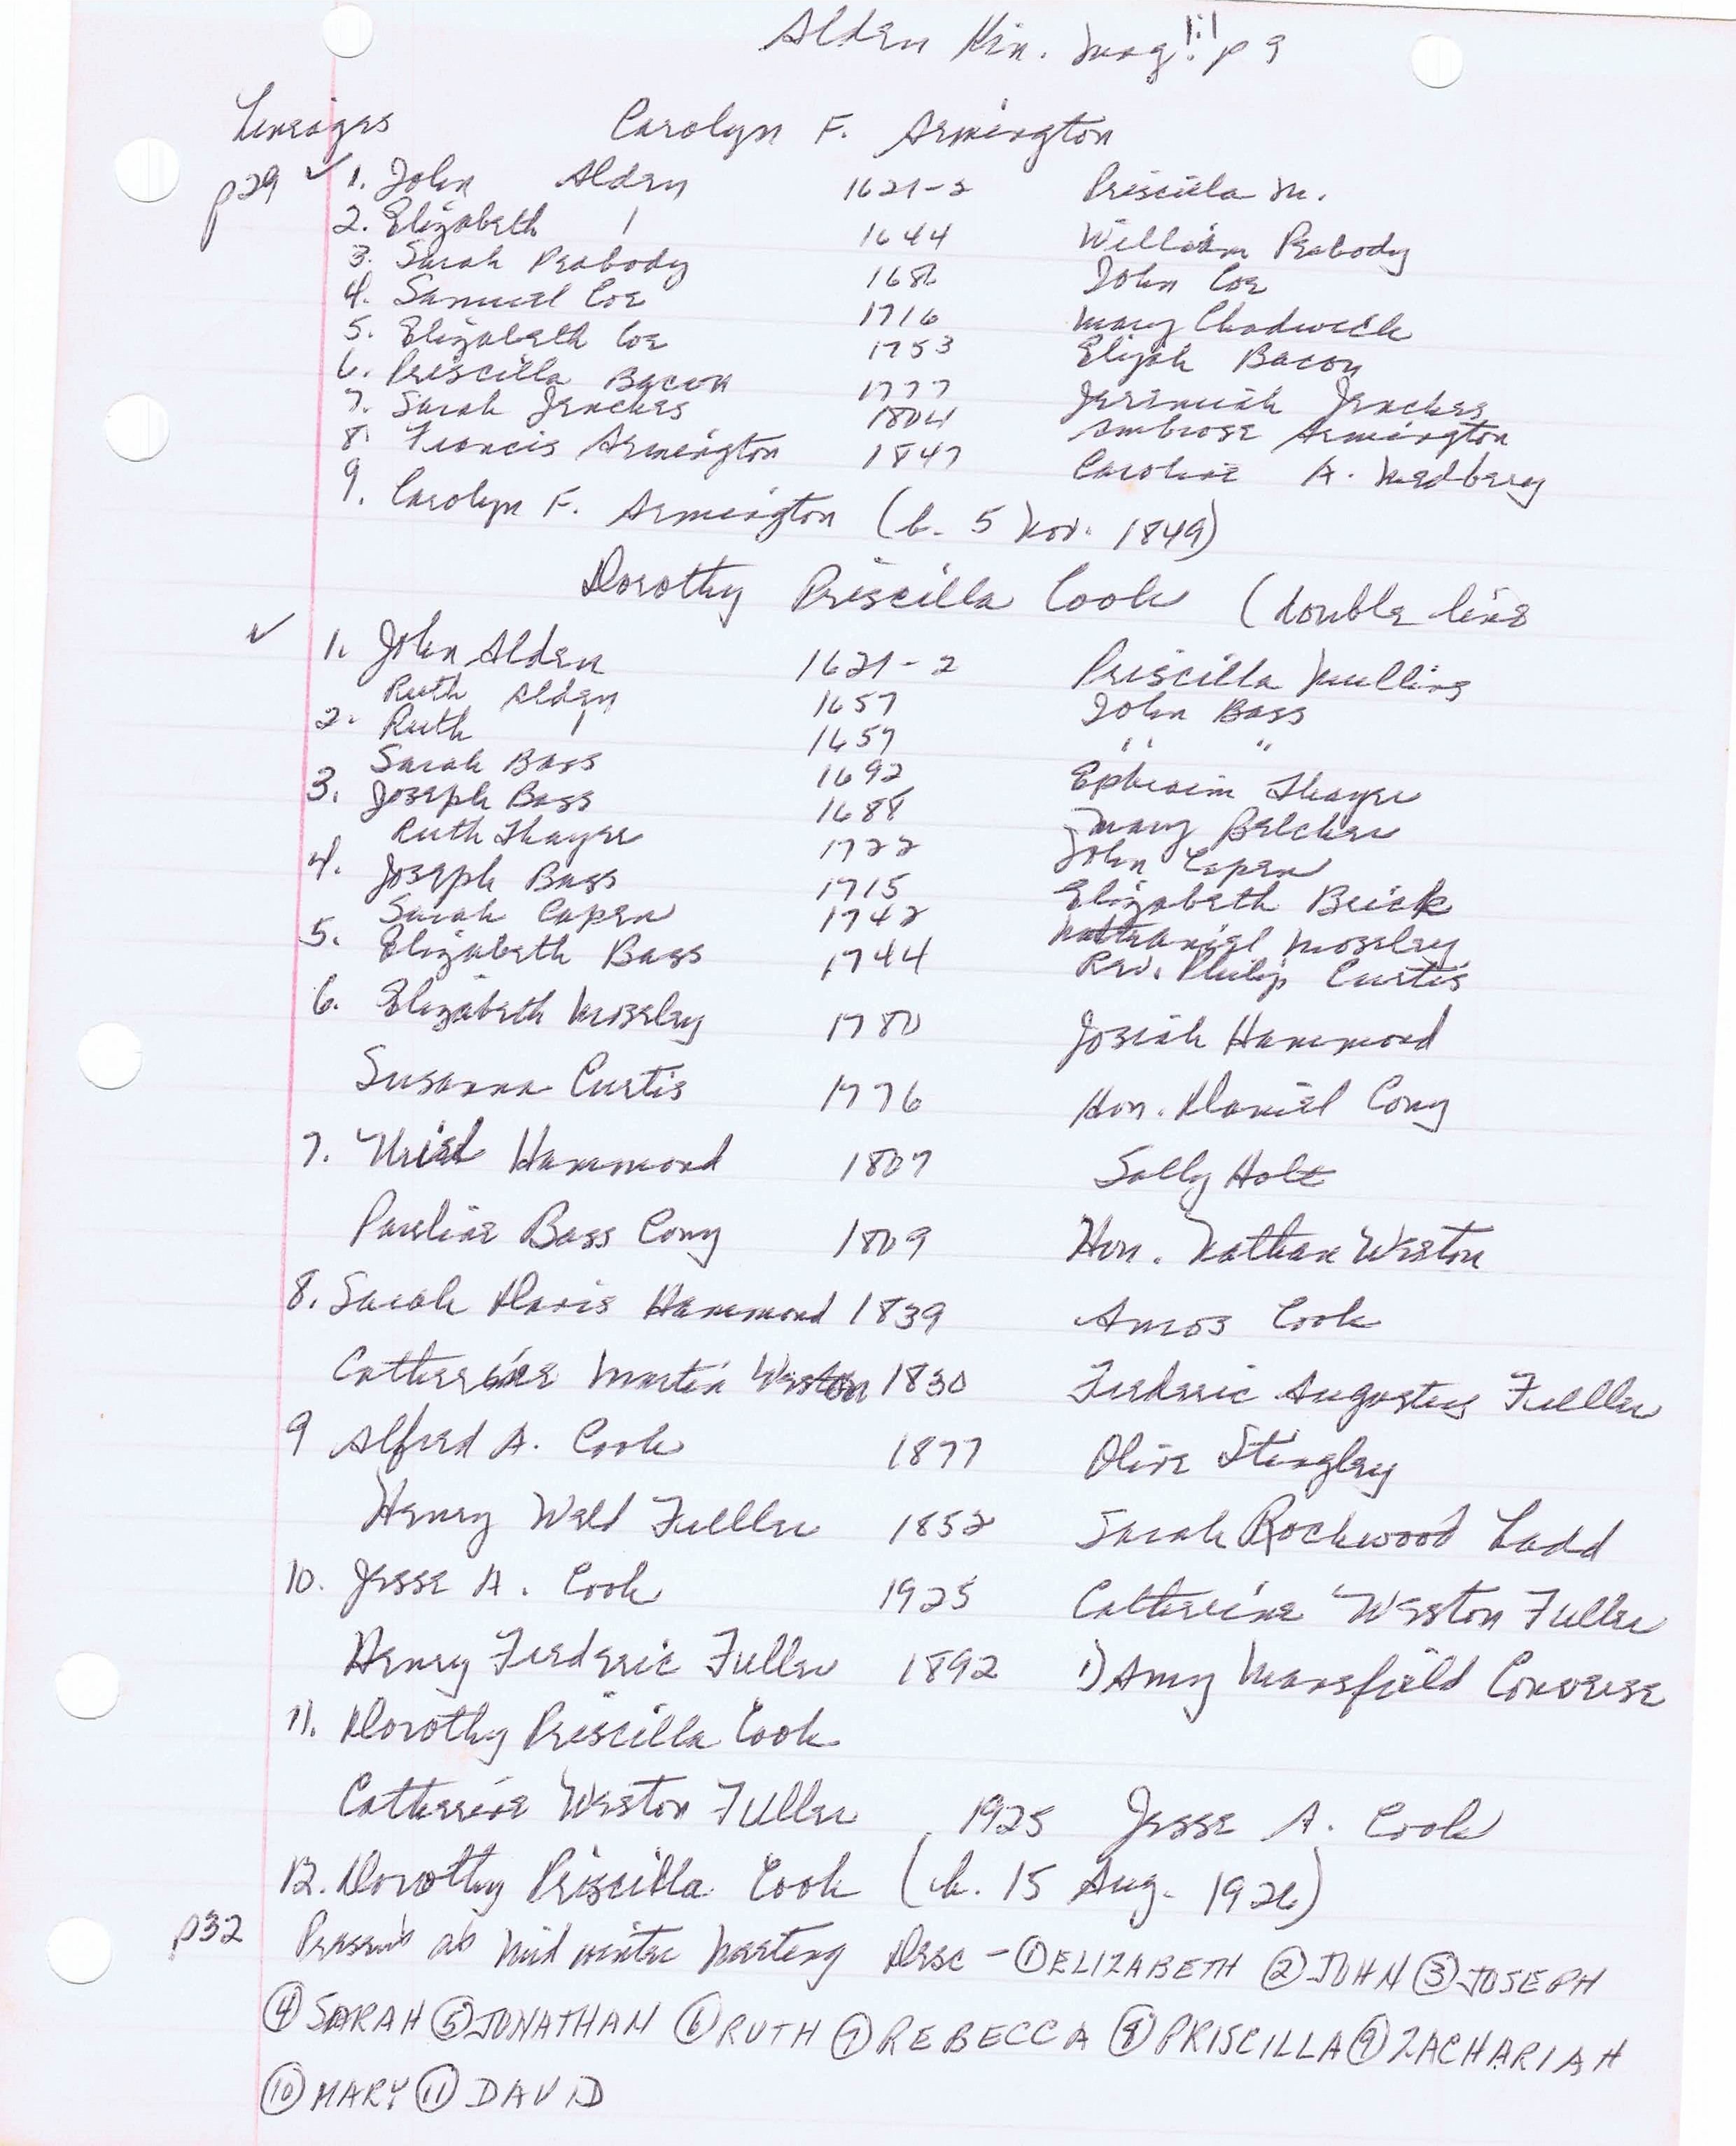 Alden Kin. Mag. 1:1 p 9
Lineages Carolyn F. Armington
p29 ✓ 1. John Alden 1621-2 Priscilla M.
2. Elizabeth 1 1644 William Peabody
3. Sarah Peabody 168 John Coe
4. Samuel Coe 1716 Mary Chadwick
5. Elizabeth Coe 1753 Elijah Bacon
6. Priscilla Bacon 1777 Jeremiah Jenckes
7. Sarah Jenckes 1804 Ambrose Armington
8. Francis Armington 1847 Caroline A. Medbery
9. Carolyn F. Armington (b. 5 Nov. 1849)
Dorothy Priscilla Cook (double line
✓ 1. John Alden 1621-2 Priscilla Mullins
Ruth Alden 1657 John Bass
2. Ruth 1 1657 " "
Sarah Bass 1692 Ephraim Thayer
3. Joseph Bass 1688 Mary Belcher
Ruth Thayer 1722 John Capen
4. Joseph Bass 1715 Elizabeth Breck
Sarah Capen 1742 Nathaniel Moseley
5. Elizabeth Bass 1744 Rev. Philip Curtis
6. Elizabeth Moseley 1780 Josiah Hammond
Susanna Curtis 1776 Hon. Daniel Cony
7. Uriel Hammond 1807 Sally Holt
Pauline Bass Cony 1809 Hon. Nathan Weston
8. Sarah Davis Hammond 1839 Amos Cook
Catherine Martin Weston 1830 Frederic Augustus Fulller
9 Alfred A. Cook 1877 Olive Stingley
Henry Weld Fulller 1852 Sarah Rockwood Ladd
10. Jesse A. Cook 1925 Catherine Weston Fuller
Henry Frederic Fuller 1892 1) Amy Mansfield Converse
11. Dorothy Priscilla Cook
Catherine Weston Fuller 1925 Jesse A. Cook
12. Dorothy Priscilla Cook (b. 15 Aug. 1926)
p32 Present at Mid winter Meeting Desc - ① ELIZABETH ② JOHN ③ JOSEPH
④ SARAH ⑤ JONATHAN ⑥ RUTH ⑦ REBECCA ⑧ PRISCILLA ⑨ ZACHARIAH
⑩ MARY ⑪ DAVID